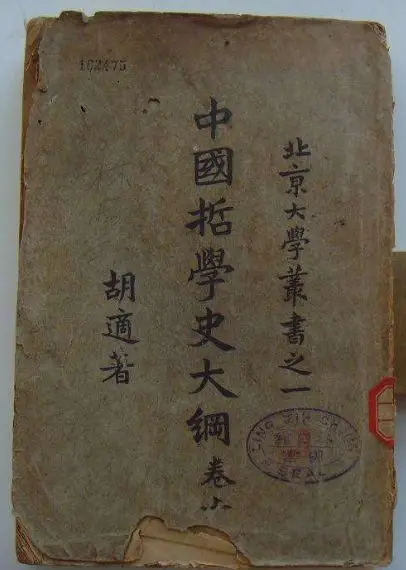 162475
北京大學叢書之一
中國哲學史大綱 卷上
胡適著